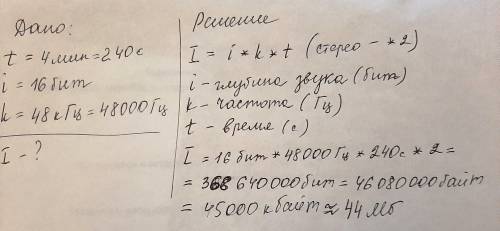 Дано:
t = 4 мин = 240 с
i = 16 бит
k = 48 кГц = 48000 Гц
I - ?
Решение
I = i * k * t (стерео - *2)
i - глубина звука (бит)
k - частота (Гц)
t - время (с)
I = 16 бит * 48000 Гц * 240 с * 2 =
= 368 640 000 бит = 46080000 байт
= 45000 кбайт ≈ 44 Мб